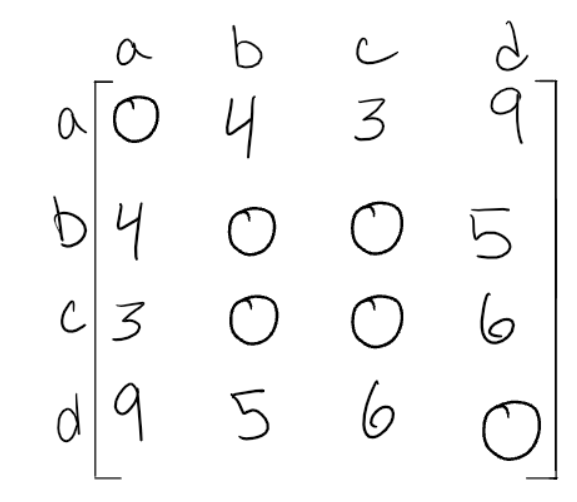 a b c d
a 0 4 3 9
b 4 0 0 5
c 3 0 0 6
d 9 5 6 0